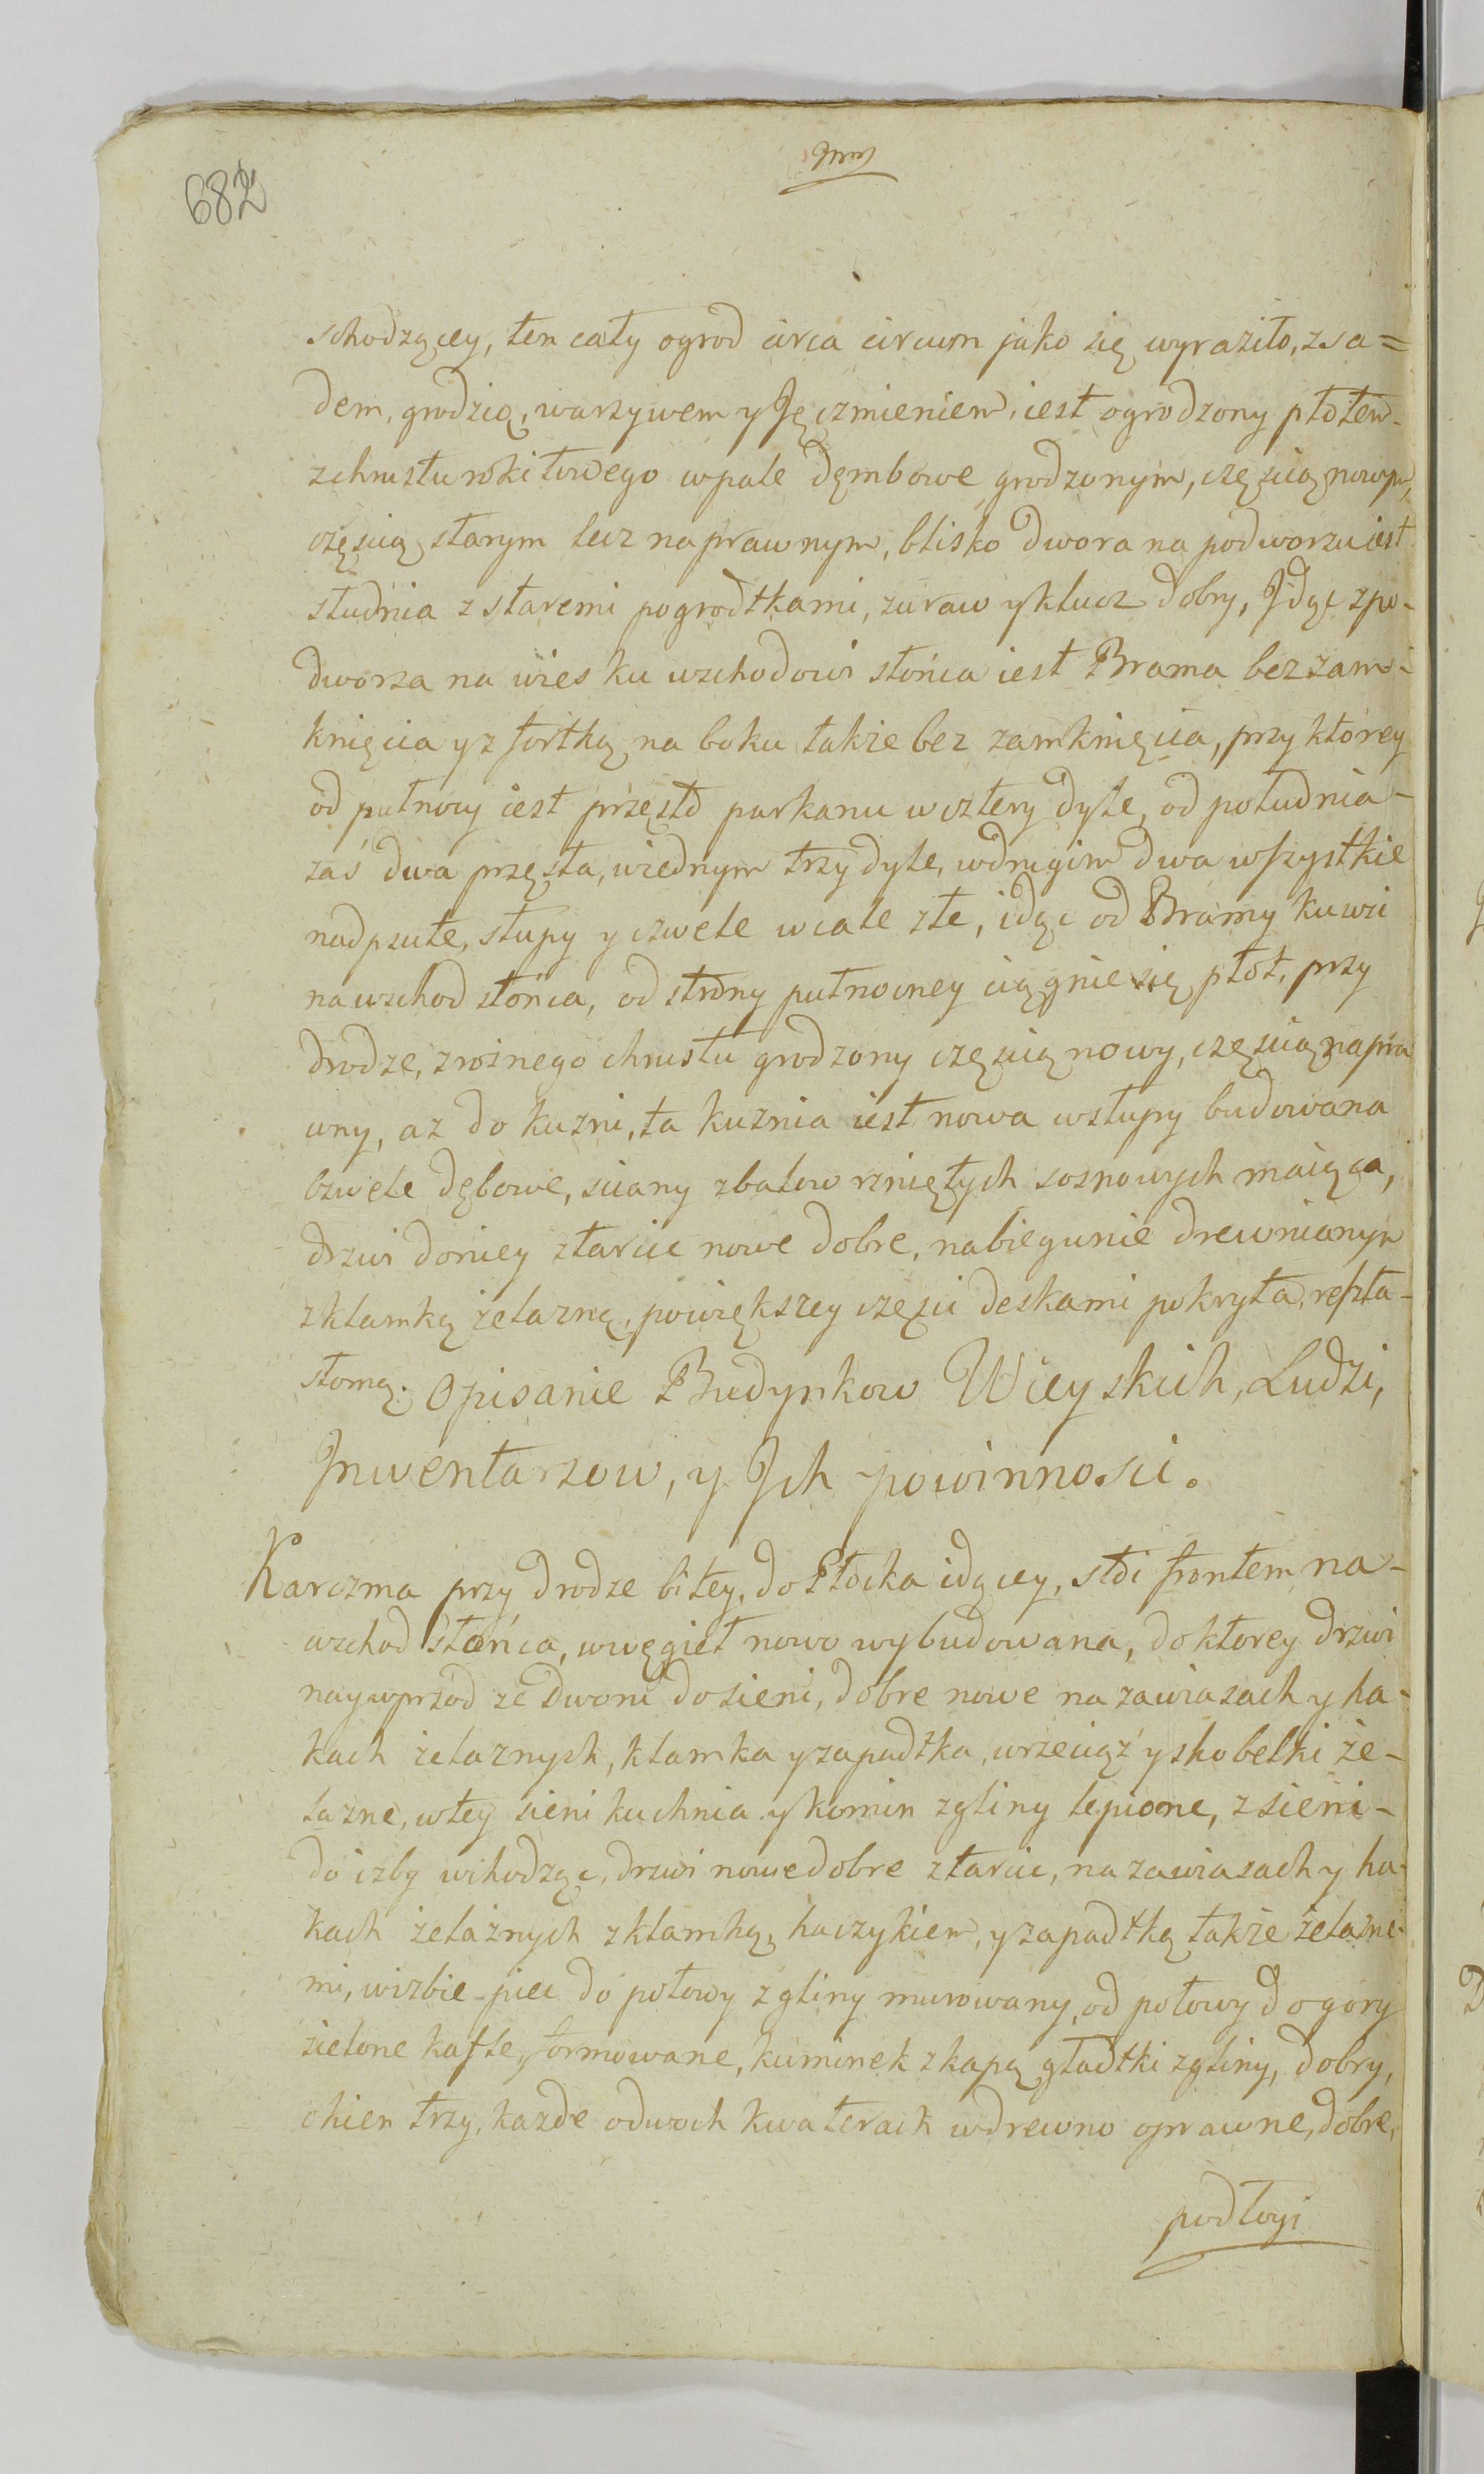 682
schodzącey, ten cały ogrod circa circum jako się wyraziło, z sa=
dem, grodzią, warzywem y Jęczmieniem, iest ogrodzony płotem
z chrustu rokitowego w pale dęmbowe grodzonym, częscią nowym,
częscią starym lecz naprawnym, blisko dwora na podworzu iest
studnia z staremi pogrodtkami, zuraw y klucz dobry, Jdąc z po-
dworza na wies ku wschodowi słońca iest Brama bez zam-
knięcia y z fortką na boku także bez zamknięcia, przy którey
od pułnocy iest przęsło parkanu w cztery dyle, od południa
zaś dwa przęsła, w iednym trzy dyle, w drugim dwa wszystkie
nadpsute, słupy y czwele wcale złe, idąc od Bramy ku wsi
na wschod słońca, od strony pułnocney ciągnie się płot, przy
drodze, z rożnego chrustu grodzony częscią nowy, częscią napra
wny, az do kuzni, ta kuznia iest nowa w słupy budowana
czwele dębowe, sciany z balow rzniętych sosnowych maiąca,
drzwi do niey z tarcic nowe dobre, na biegunie drewnianym
z klamką żelazną, po większey częsci deskami pokryta, reszta
słomą. Opisanie Budynkow Wieyskich, Ludzi,
Jnwentarzow, y Jch powinnosci.
Karczma przy drodze bitey, do Płocka idącey, stoi frontem na-
wschod słońca, w węgieł nowo wybudowana, do ktorey drzwi
naywprzod ze Dworu do sieni, dobre nowe na zawiasach y ha-
kach żelaznych, klamka y zapadtka, wrzeciąż y skobelki że-
lazne, w tey sieni kuchnia y komin z gliny lepione, z sieni-
do izby wchodząc, drzwi nowe dobre z tarcic, na zawiasach y ha-
kach żelażnych z klamką, haczykiem, y zapadtką także żelazne-
mi, w izbie piec do połowy z gliny murowany, od połowy do gory
zielone kafle, formowane, kuminek z kapą gładtki z gliny, dobry,
okien trzy, każde o dwoch kwaterach w drewno oprawne, dobre,
podłogi